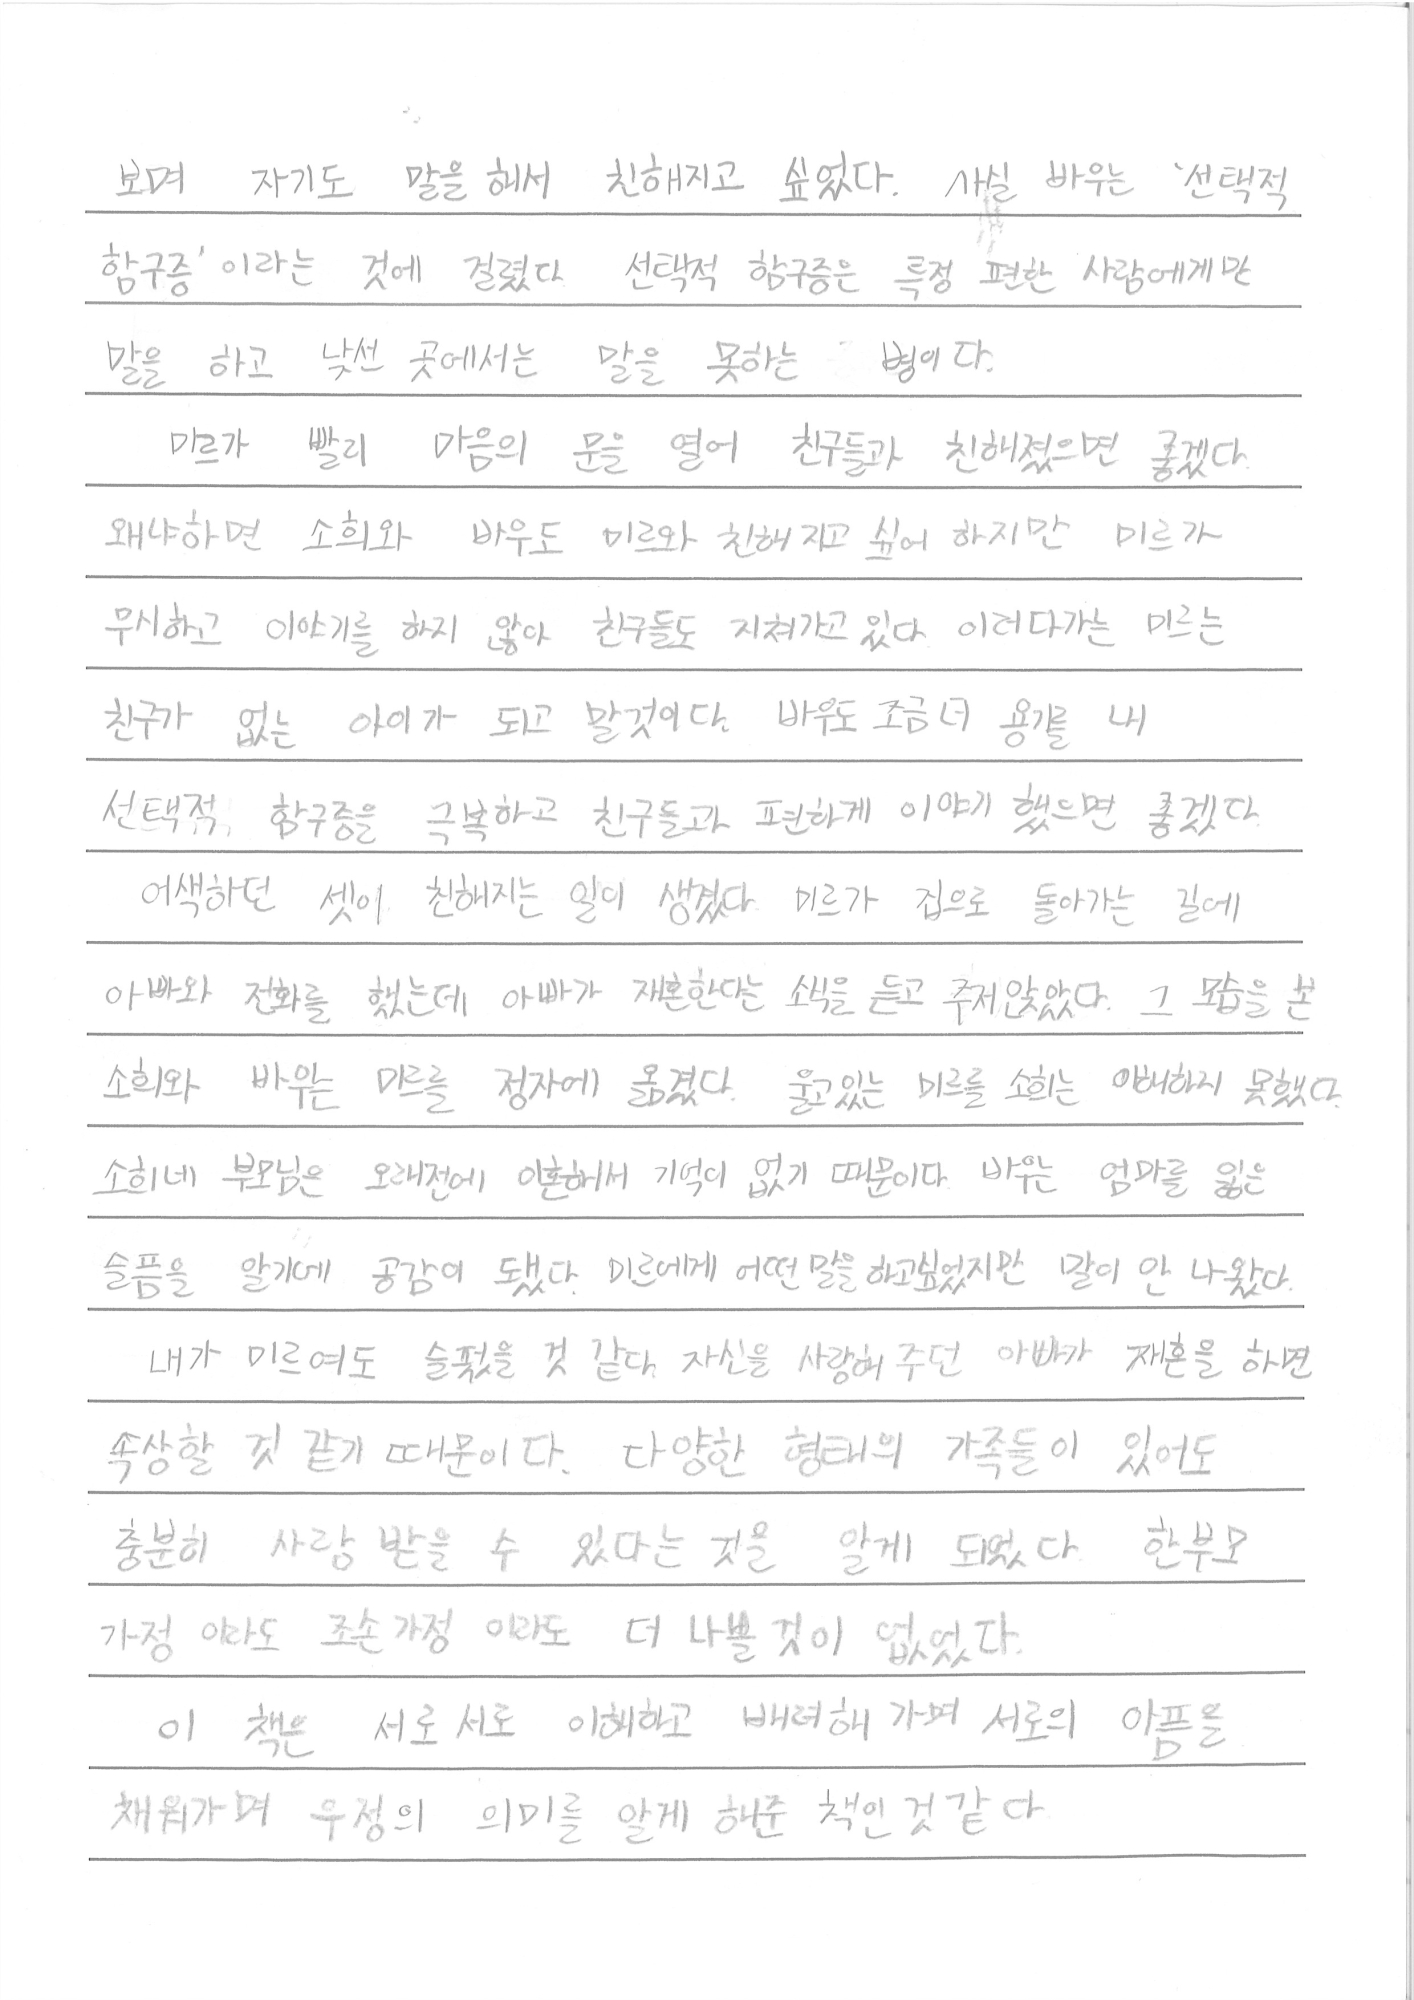 보며 자기도 말을 해서 친해지고 싶었다. 사실 바우는 '선택적
함구증'이라는 것에 걸렸다 선택적 함구증은 특정 편한 사람에게만
말을 하고 낯선 곳에서는 말을 못하는 병이다.
미르가 빨리 마음의 문을 열어 친구들과 친해졌으면 좋겠다.
왜냐하면 소희와 바우도 미르와 친해지고 싶어 하지만 미르가
무시하고 이야기를 하지 않아 친구들도 지쳐가고 있다 이러다가는 미르는
친구가 없는 아이가 되고 말것이다. 바우도 조금 더 용기를 내
선택적 함구증을 극복하고 친구들과 편하게 이야기 했으면 좋겠다.
어색하던 셋이 친해지는 일이 생겼다 미르가 집으로 돌아가는 길에
아빠와 전화를 했는데 아빠가 재혼한다는 소식을 듣고 주저앉았다. 그 모습을 본
소희와 바우는 미르를 정자에 옮겼다. 울고있는 미르를 소희는 이해하지 못했다.
소희네 부모님은 오래전에 이혼해서 기억이 없기 때문이다. 바우는 엄마를 잃은
슬픔을 알기에 공감이 됐다. 미르에게 어떤 말을 하고싶었지만 말이 안 나왔다.
내가 미르여도 슬펐을 것 같다. 자신을 사랑해 주던 아빠가 재혼을 하면
속상할 것 같기 때문이다. 다양한 형태의 가족들이 있어도
충분히 사랑 받을 수 있다는 것을 알게 되었다 한부모
가정 이라도 조손가정 이라도 더 나쁠 것이 없었다.
이 책은 서로 서로 이해하고 배려해 가며 서로의 아픔을
채워가며 우정의 의미를 알게 해준 책인 것 같다